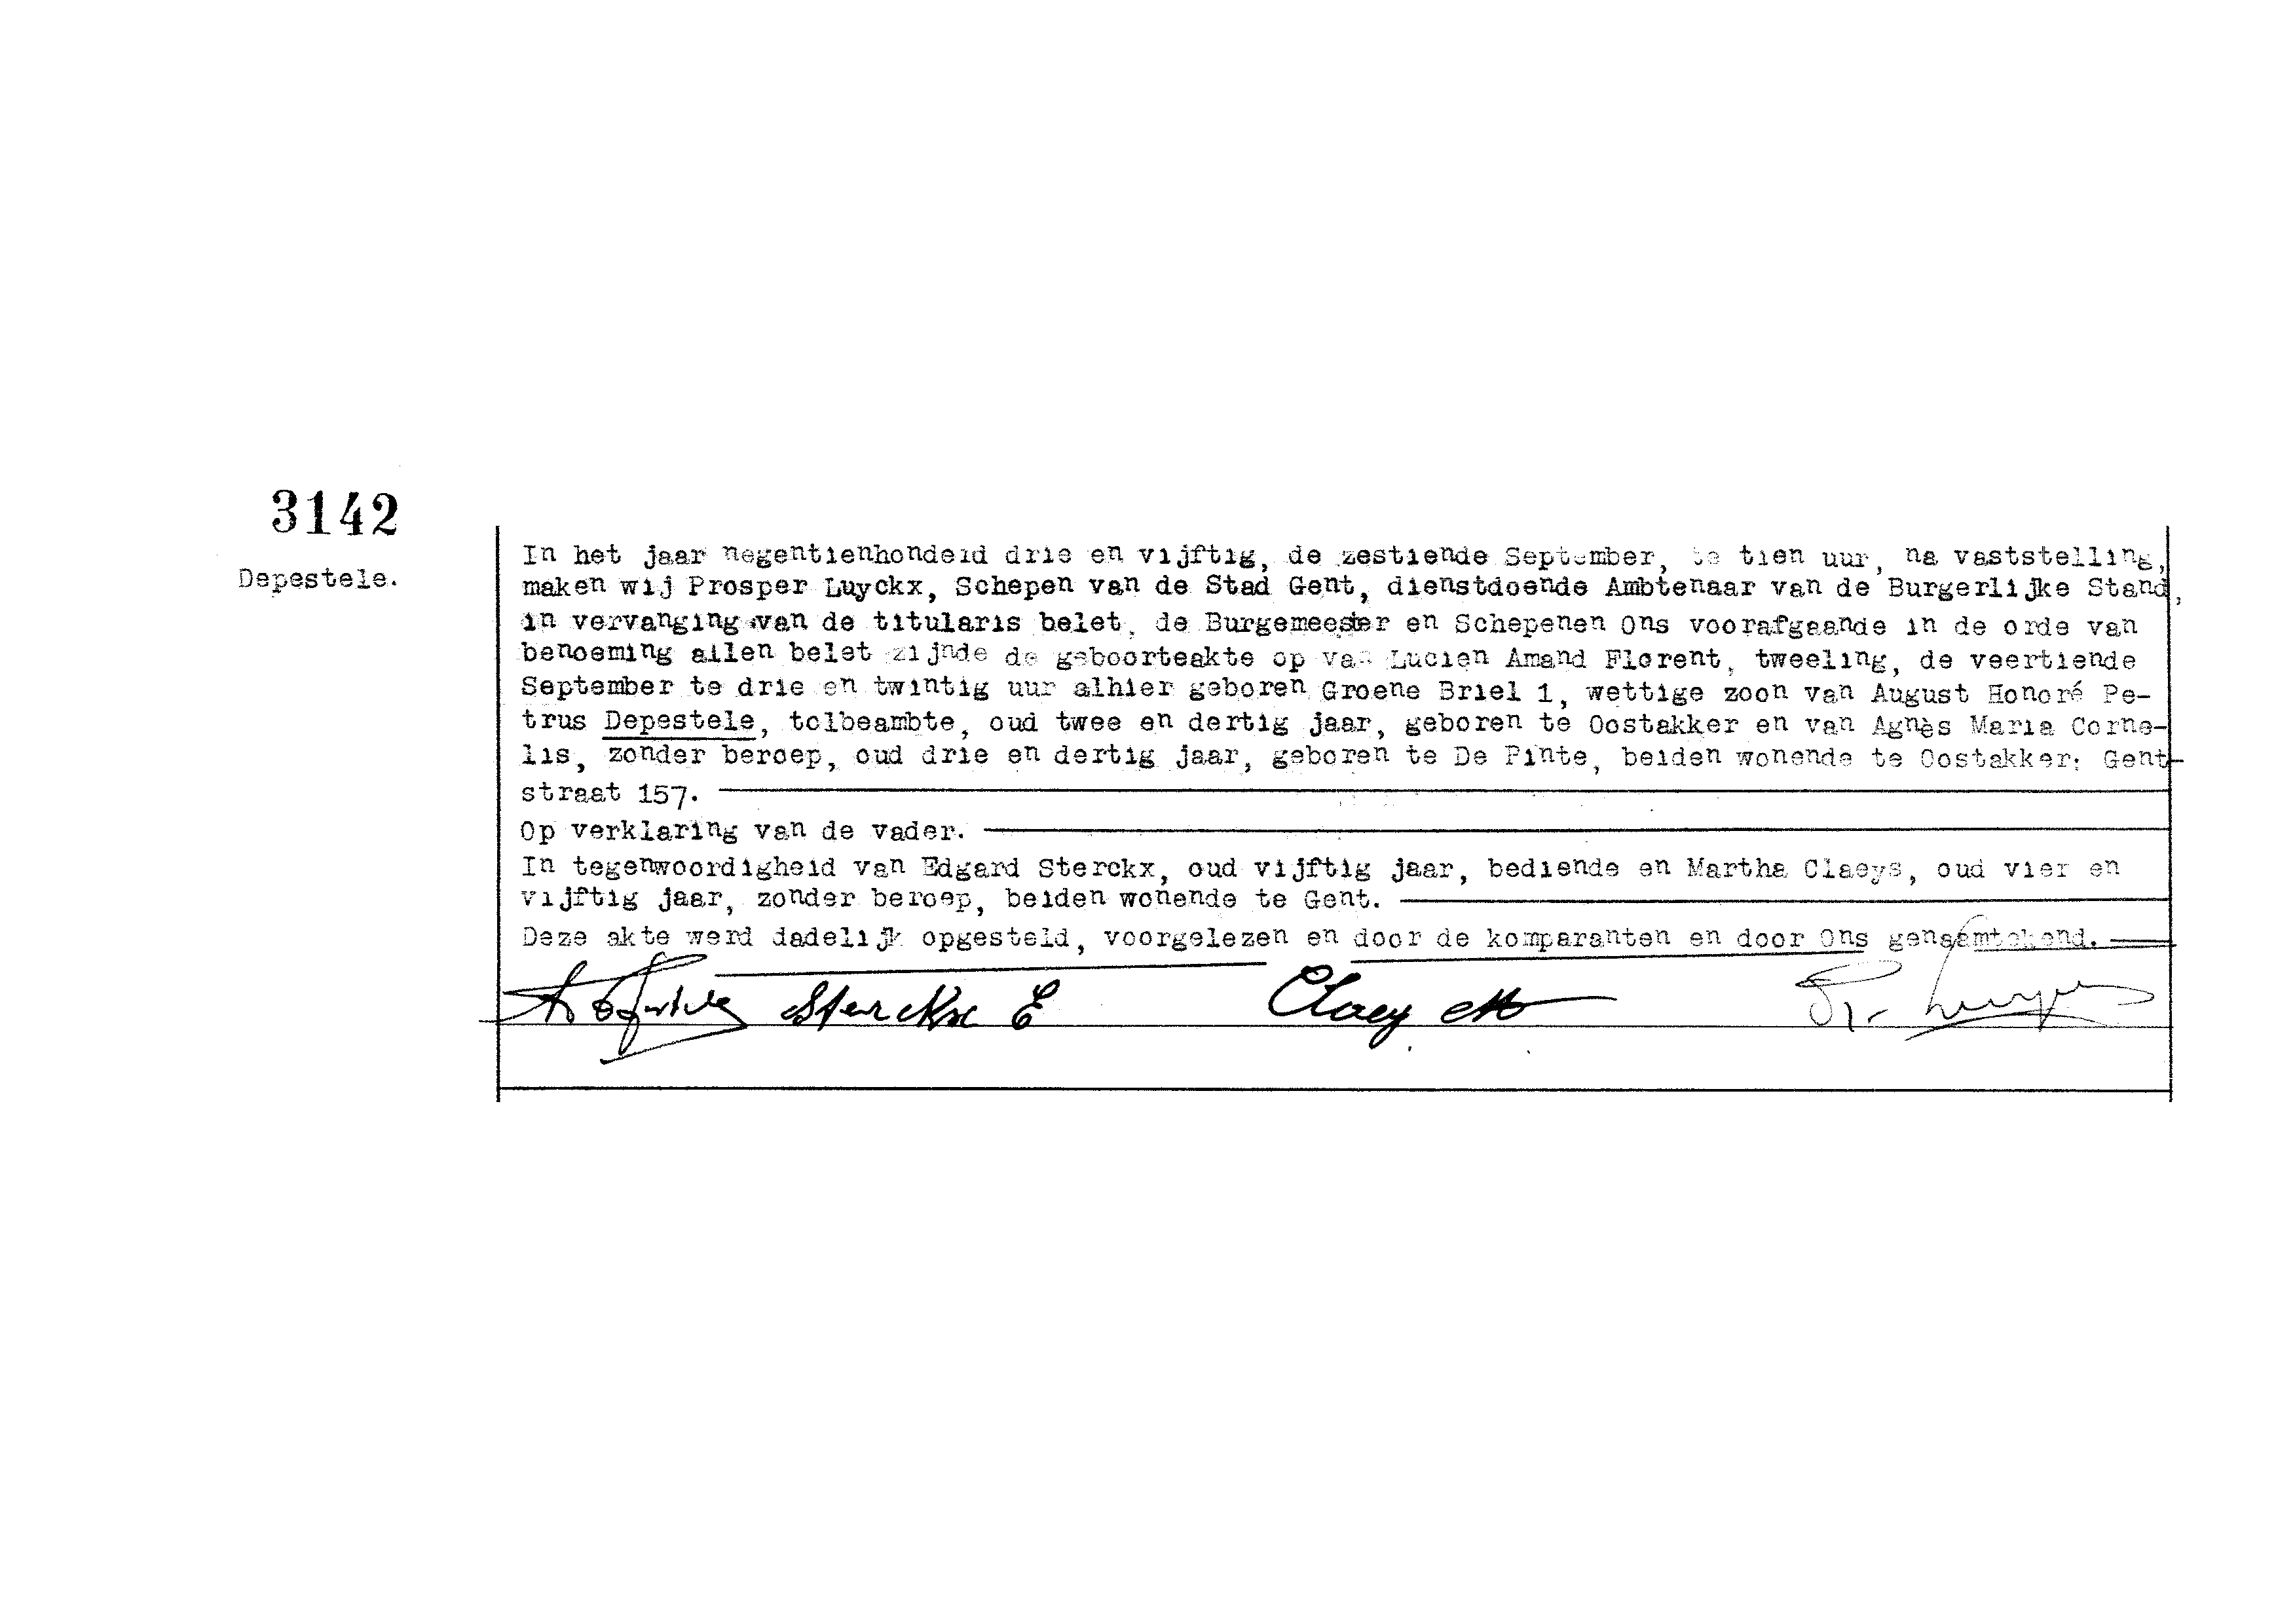 3142
Depestele.
In het jaar negentienhonderd drie en vijftig, de zestiende September, te tien uur, na vaststelling,
maken wij Prosper Luyckx, Schepen van de Stad Gent, dienstdoende Ambtenaar van de Burgerlijke Stand,
in vervanging van de titularis belet, de Burgemeester en Schepenen Ons voorafgaande in de orde van
benoeming allen belet zijnde de geboorteakte op van Lucien Amand Florent, tweeling, de veertiende
September te drie en twintig uur alhier geboren Groene Briel 1, wettige zoon van August Honoré Pe-
trus Depestele, tolbeambte, oud twee en dertig jaar, geboren te Oostakker en van Agnès Maria Corne-
lis, zonder beroep, oud drie en dertig jaar, geboren te De Pinte, beiden wonende te Oostakker: Gent-
straat 157.
Op verklaring van de vader.
In tegenwoordigheid van Edgard Sterckx, oud vijftig jaar, bediende en Martha Claeys, oud vier en
vijftig jaar, zonder beroep, beiden wonende te Gent.
Deze akte werd dadelijk opgesteld, voorgelezen en door de komparanten en door Ons genaamtekend.
Sterckx E Claeys M